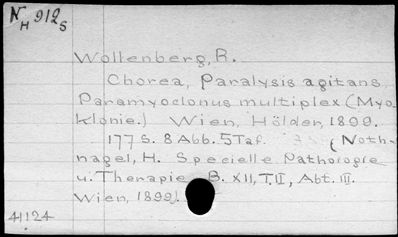 N H 912 S
Wollenberg, R.
Chorea, Paralysis agitans
Paramyoclonus multiplex (Myo-
klonie.) Wien, Hölder, 1899.
177 S. 8 Abb. 5 Taf. (Noth-
nagel, H. Specielle Pathologie
u. Therapie B. XII, T. II, Abt. III.
Wien, 1899).
41124